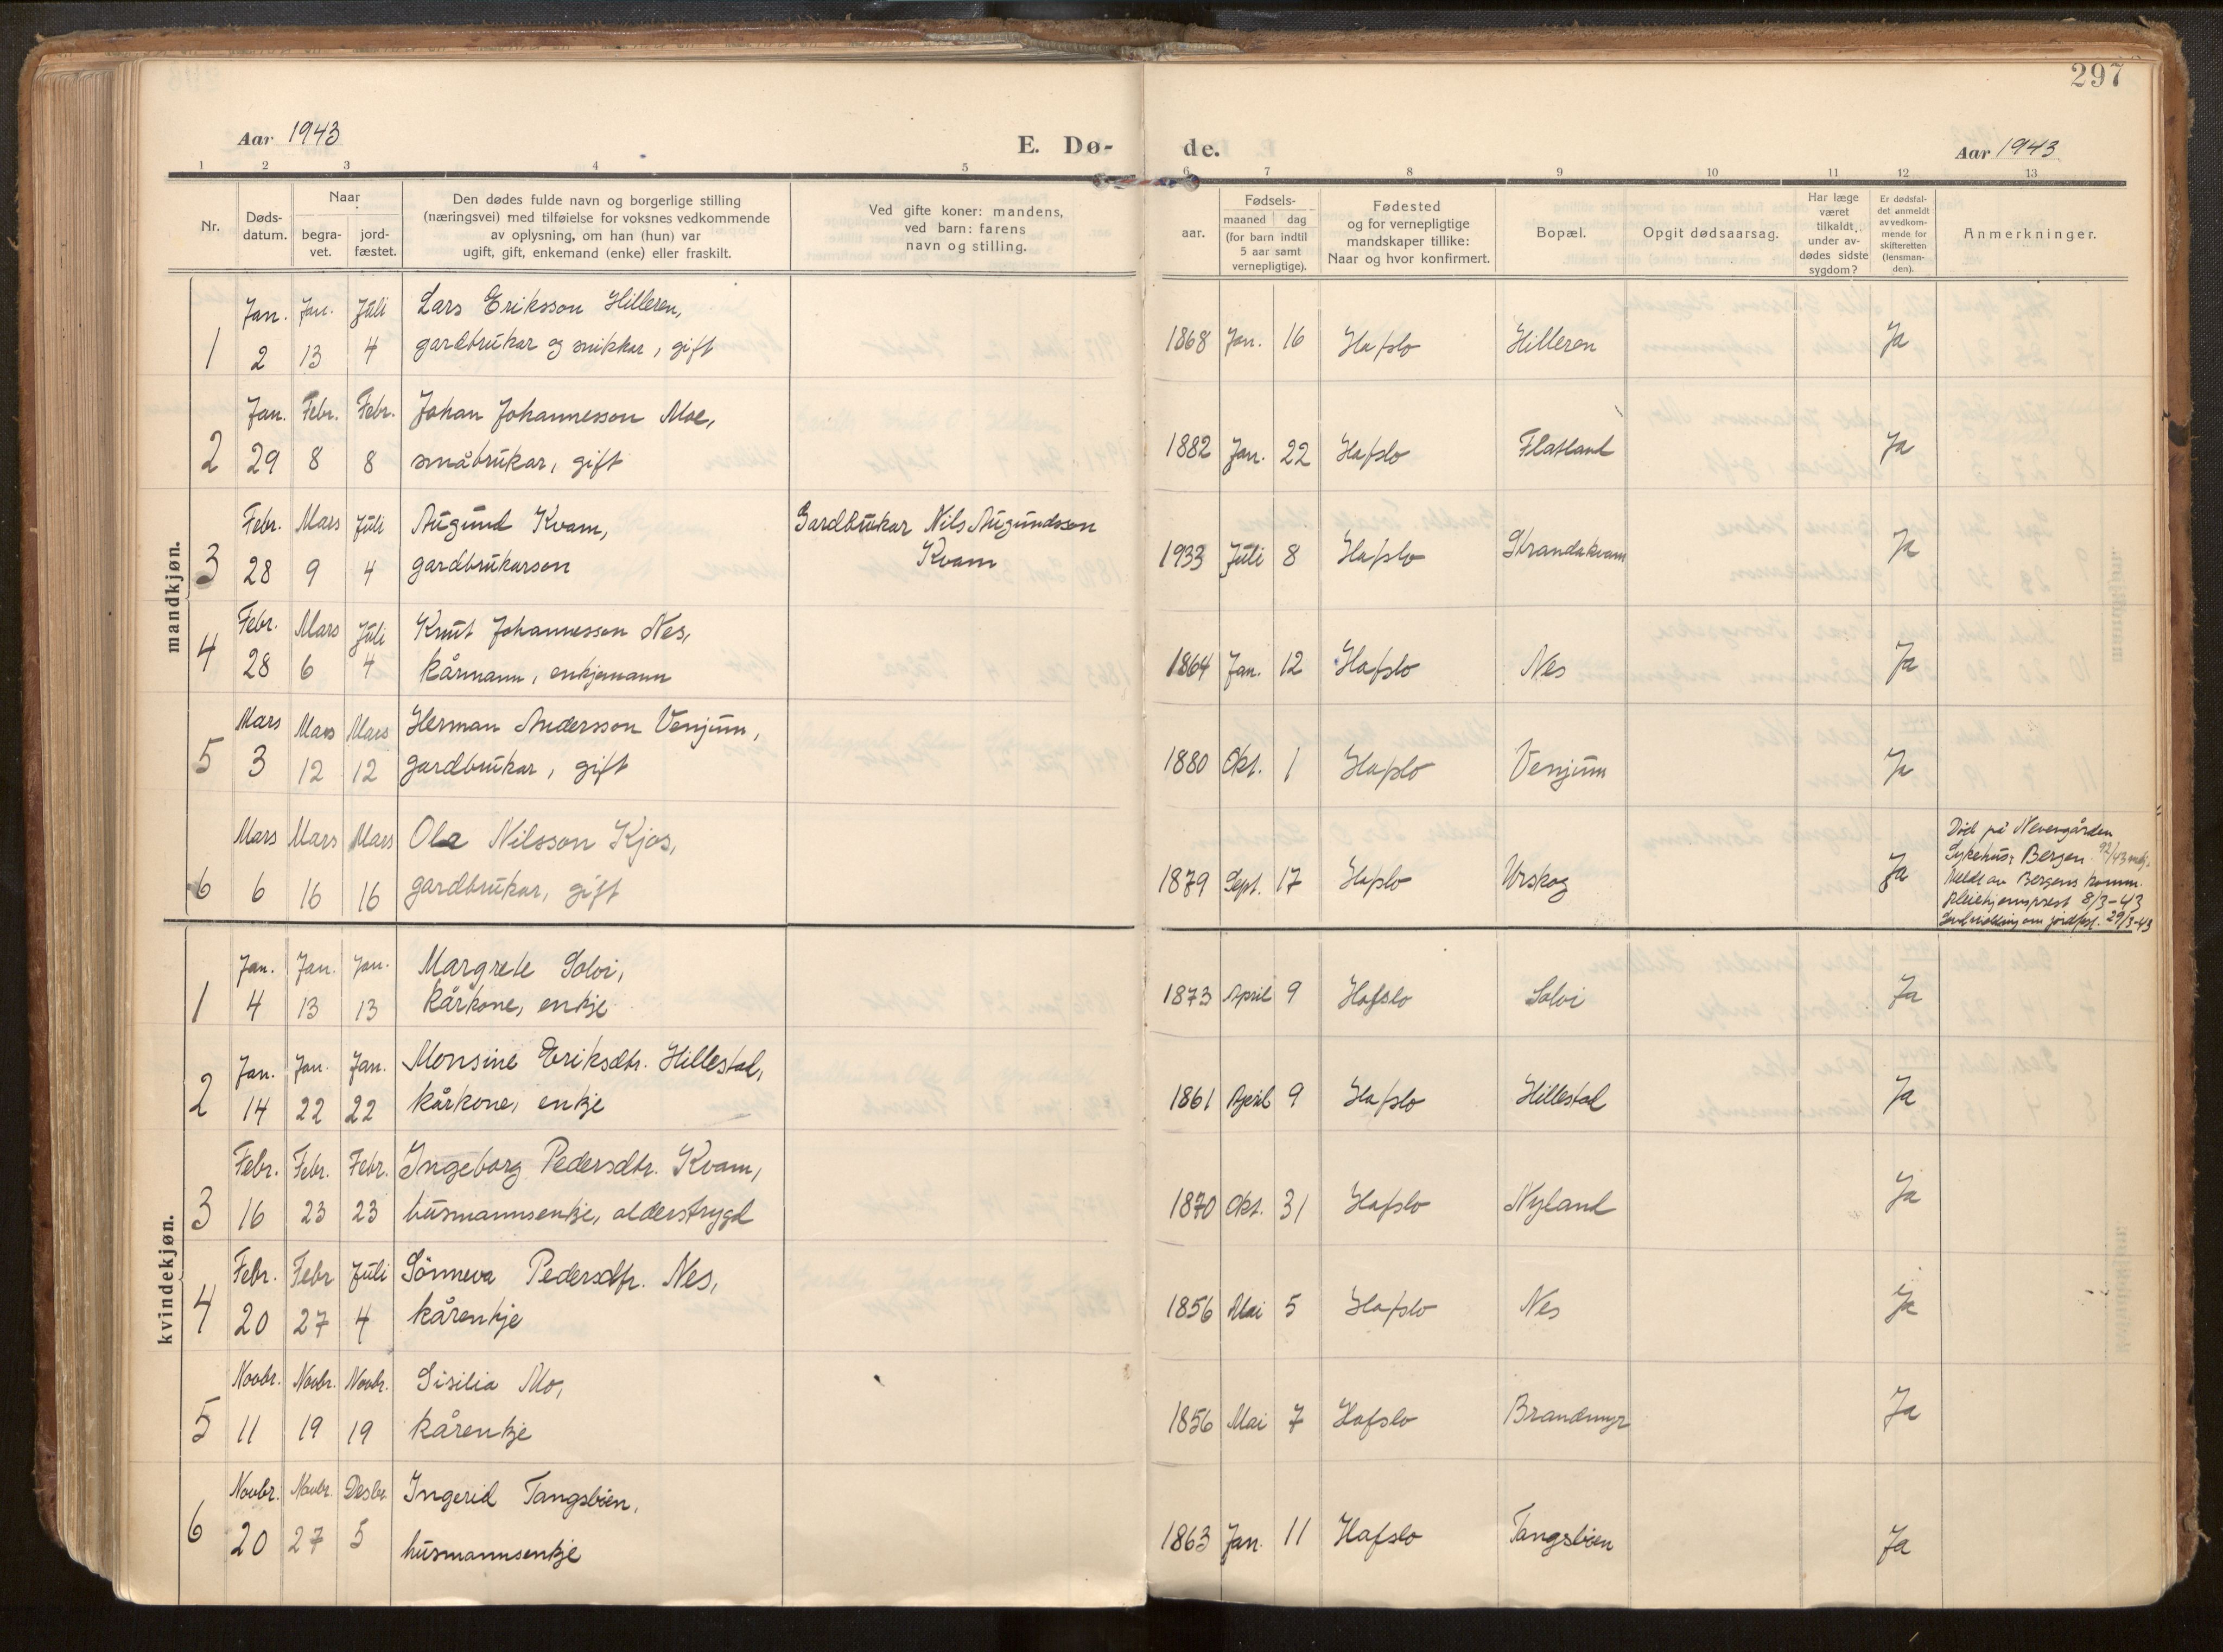 297
Aar 1943
E. Dø-
de.
Aar 1943
1 2 3 4 5 6 7 8 9 10 11 12 13
Nr.
Døds-
datum.
Naar
begra-
vet.
jord-
fæstet.
Den dødes fulde navn og borgerlige stilling
(næringsvei) med tilføielse for voksnes vedkommende
av oplysning, om han (hun) var
ugift, gift, enkemand (enke) eller fraskilt.
Ved gifte koner: mandens,
ved barn: farens
navn og stilling.
Fødsels-
aar.
maaned dag
(for barn indtil
5 aar samt
vernepligtige).
Fødested
og for vernepligtige
mandskaper tillike:
Naar og hvor konfirmert.
Bopæl.
Opgit dødsaarsag.
Har læge
været
tilkaldt
under av-
dødes sidste
sygdom?
Er dødsfal-
det anmeldt
av vedkom-
mende for
skifteretten
(lensman-
den).
Anmerkninger.
mandkjøn.
Jan. Jan. Juli Lars Eriksson Hilleren,
1 2 13 4 gardbrukar og snikkar, gift 1868 Jan. 16 Hafslo Hilleren Ja
Jan. Febr. Febr. Johan Johannesson Moe,
2 29 8 8 småbrukar, gift 1882 Jan. 22 Hafslo Flatland Ja
Febr. Mars Juli Augund Kvam, Gardbrukar Nils Augundsson
3 28 9 4 gardbrukarson Kvam 1933 Juli 8 Hafslo Strandakvam Ja
Febr. Mars Juli Knut Johannesson Nes,
4 28 6 4 kårmann, enkjemann 1864 Jan. 12 Hafslo Nes Ja
Mars Mars Mars Herman Andersson Venjum,
5 3 12 12 gardbrukar, gift 1880 Okt. 1 Hafslo Venjum Ja
Mars Mars Mars Ola Nilsson Kjos,
6 6 16 16 gardbrukar, gift 1879 Sept. 17 Hafslo Urskog Ja
Død på Nevengården
Sykehus, Bergen
Meldt av Bergens komm.
pleiehjemsprest 8/3-43
melding om jordfest. 29/3-43
kvindekjøn.
Jan. Jan. Jan. Margrete Solvi,
1 4 13 13 kårkone, enkje 1873 April 9 Hafslo Solvi Ja
Jan. Jan. Jan. Monsine Eriksdtr. Hillestad,
2 14 22 22 kårkone, enkje 1861 April 9 Hafslo Hillestad Ja
Febr. Febr. Febr. Ingeborg Pedersdtr. Kvam,
3 16 23 23 husmannsenkje, alderstrygd 1870 Okt. 31 Hafslo Nyland Ja
Febr. Febr Juli Sönneva Pedersdtr. Nes,
4 20 27 4 kårenkje 1856 Mai 5 Hafslo Nes Ja
Novbr. Novbr. Novbr. Sisilia Mo,
5 11 19 19 kårenkje 1856 Mai 7 Hafslo Brandmyr Ja
Novbr. Novbr. Desbr. Ingerid Tangsbøen,
6 20 27 5 husmannsenkje 1863 Jan. 11 Hafslo Tangsbøen Ja